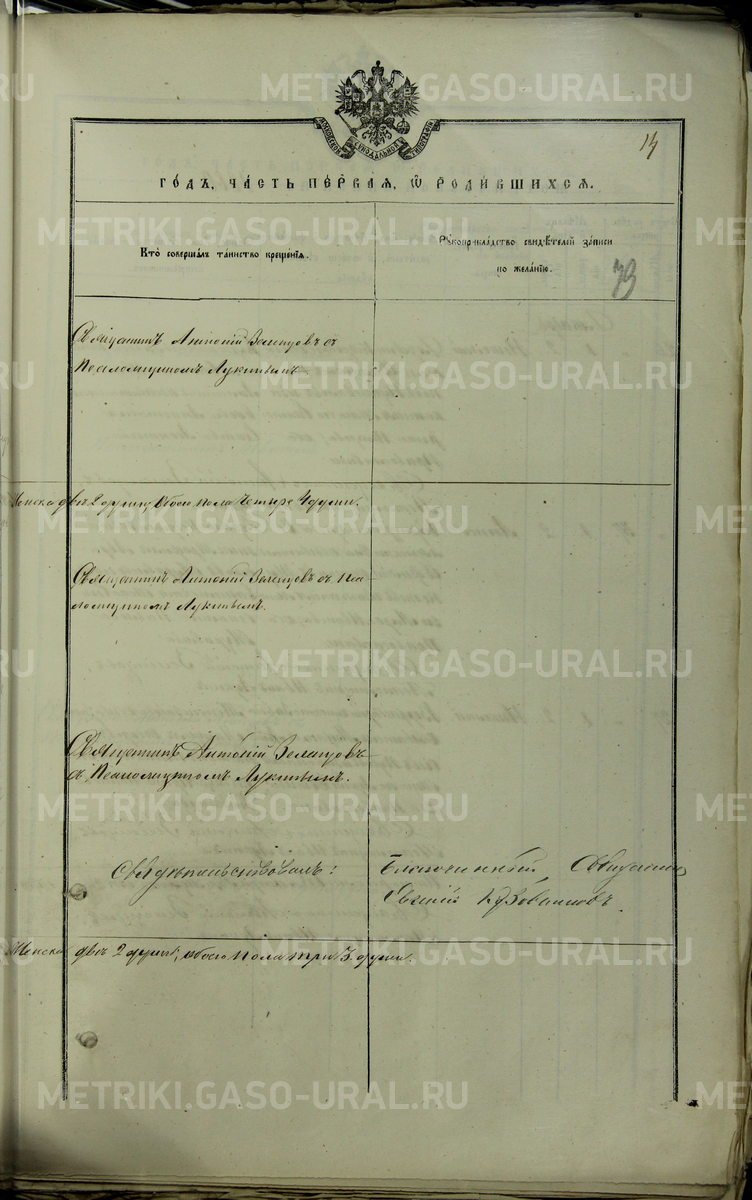 METRIKI.GASO-URAL.RU
МОСКОВСКОЙ СѴНОДАЛЬНОЙ ТИПОГРАФІИ
14
ГОДЪ, ЧАСТЬ ПЕРВАЯ, Ѡ РОДИВШИХСЯ.
Кто совершалъ таинство крещенія.
Рꙋкоприкладство свидѣтелей записи
по желанію.
79
Священникъ Антоній Зеленцовъ съ
Псаломщикомъ Лукинымъ.
Женска двѣ 2 души, обоего пола четыре 4 души.
Священникъ Антоній Зеленцовъ съ Пса-
ломщикомъ Лукинымъ.
Священникъ Антоній Зеленцовъ
съ Псаломщикомъ Лукинымъ.
Свидѣтельствовалъ: Благочинный, Священникъ
Евгеній
Женска двѣ 2 души, обоего пола три 3 души.